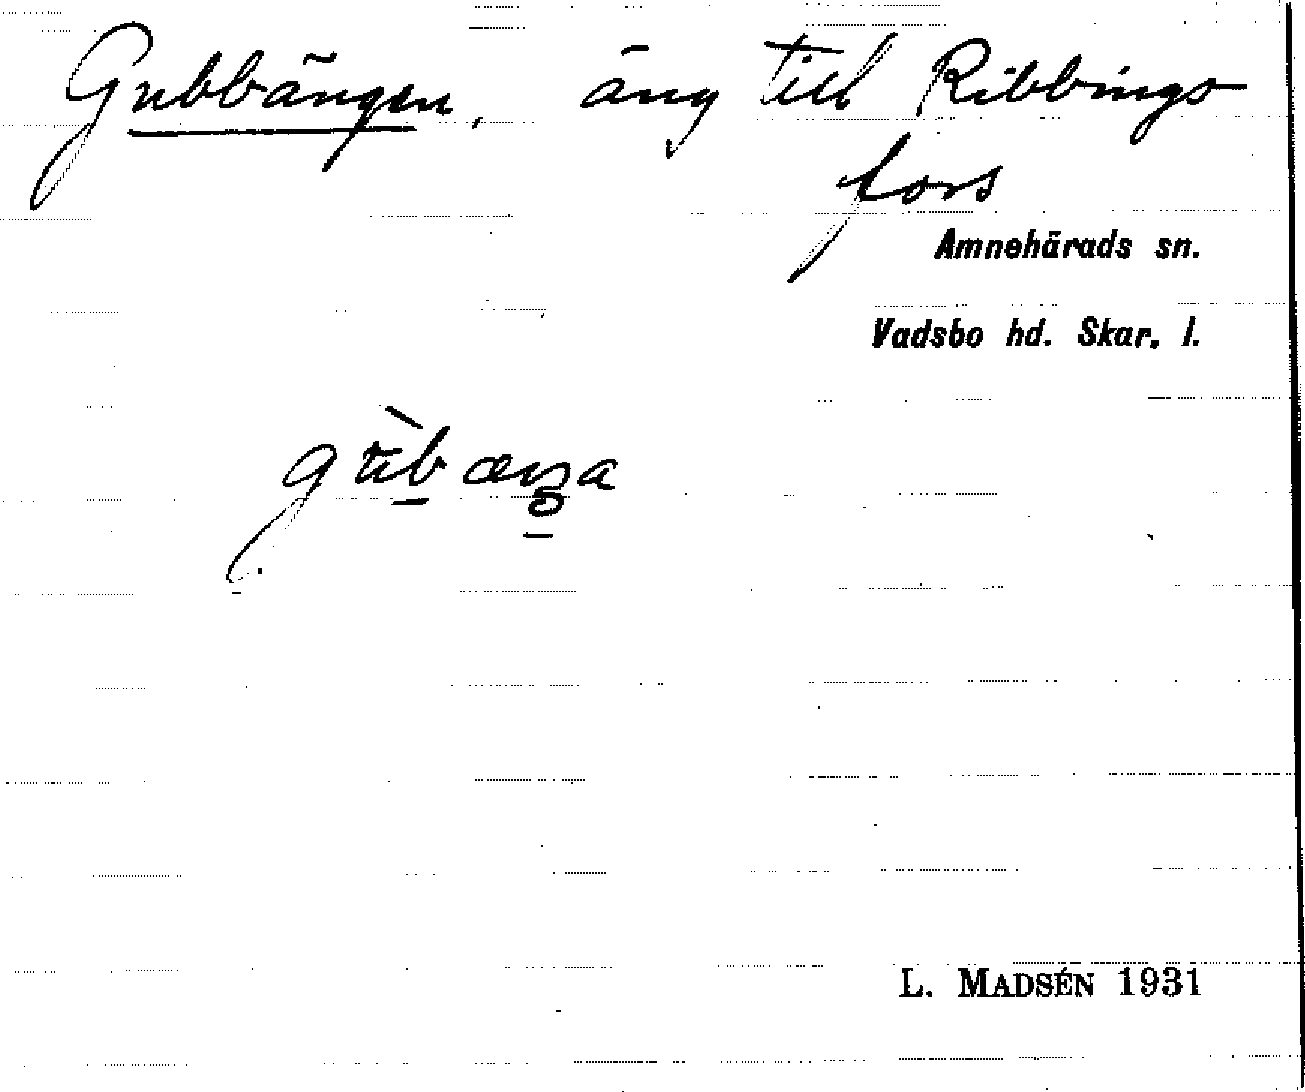 Gubbängen, äng till Ribbings
fors
Amnehärads sn.
Vadsbo hd. Skar. l.
L. MADSÉN 1931